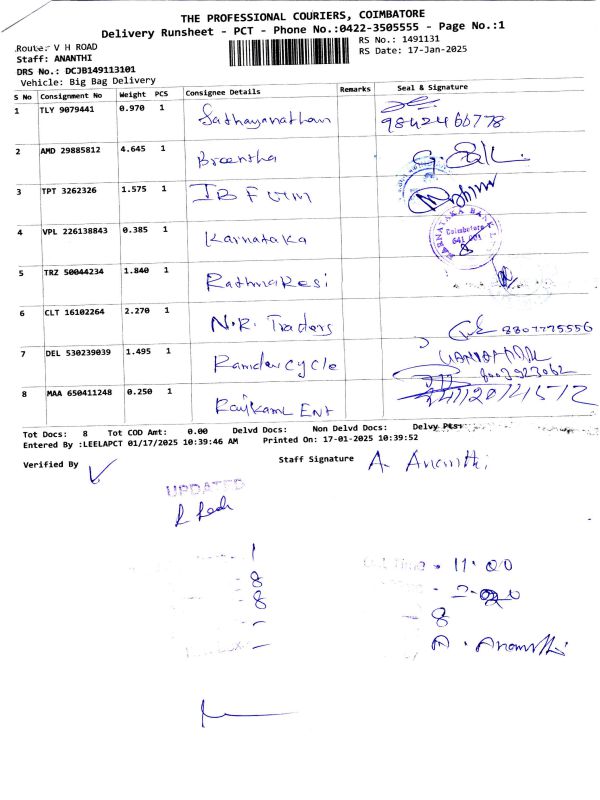 THE PROFESSIONAL COURIERS, COIMBATORE
Delivery Runsheet - PCT - Phone No.:0422-3505555 - Page No.:1
Route: V H ROAD
RS No.: 1491131
Staff: ANANTHI
RS Date: 17-Jan-2025
DRS No.: DCJB149113101
Vehicle: Big Bag Delivery
S No Consignment No Weight PCS Consignee Details Remarks Seal & Signature
1 TLY 9079441 0.970 1 Sathayanathan 9842466778
2 AMD 29885812 4.645 1 Breentha
3 TPT 3262326 1.575 1 IB Furm
4 VPL 226138843 0.385 1 Karnataka KARNATAKA BANK Coimbatore 641 001
5 TRZ 50044234 1.840 1 RathnaResi
6 CLT 16102264 2.270 1 N.R. Traders 8807775556
7 DEL 530239039 1.495 1 Ramdev cycle
8 MAA 650411248 0.250 1 Rajkaml Ent
Tot Docs: 8 Tot COD Amt: 0.00 Delvd Docs: Non Delvd Docs: Delvy Pts:
Entered By :LEELAPCT 01/17/2025 10:39:46 AM Printed On: 17-01-2025 10:39:52
Verified By
Staff Signature A. Ananthi
UPDATED
1
Out Time - 11.00
- 8
- 8
- 8
-
A. Ananthi
-